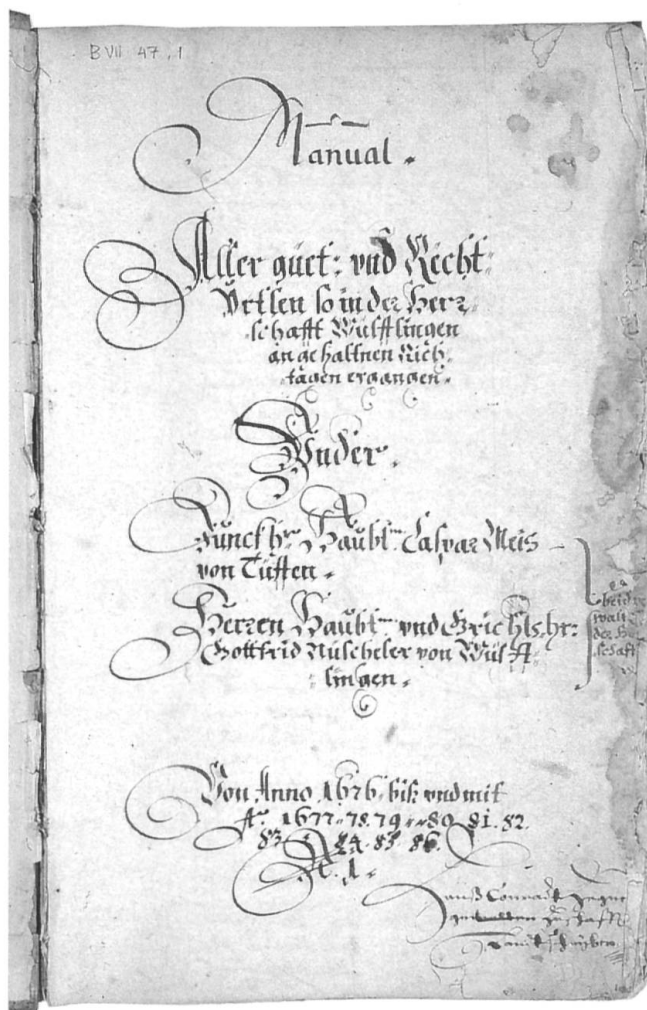 B VII 47, 1
Manual.
Aller guet: und Recht
Vrtlen so in der Herr-
schafft Wülfflingen
an gehaltnen Rich-
tägen ergangen.
Vnder.
Junckhr. Haubtm. Caspar Meis
von Tüffen.
Herren Haubtm. und Grichtshr:
Gottfrid Nüscheler von Wülff-
lingen.
beide
der
schafft
Von Anno 1676. biß und mit
Ao. 1677. 78. 79. 80. 81. 82.
83. 84. 85. 86.
N. 1.
Hanß Conradt